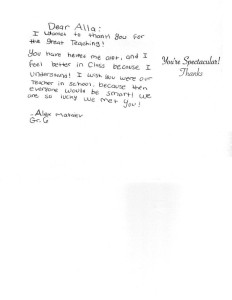 Dear Alla:
I wanted to thank you for
the great Teaching!
You have helped me alot, and I
feel better in Class because I
understand! I wish you were our
Teacher in school, because then
everyone would be smart! we
are so lucky we met you!
-Alex
Gr. 6
You're Spectacular!
Thanks